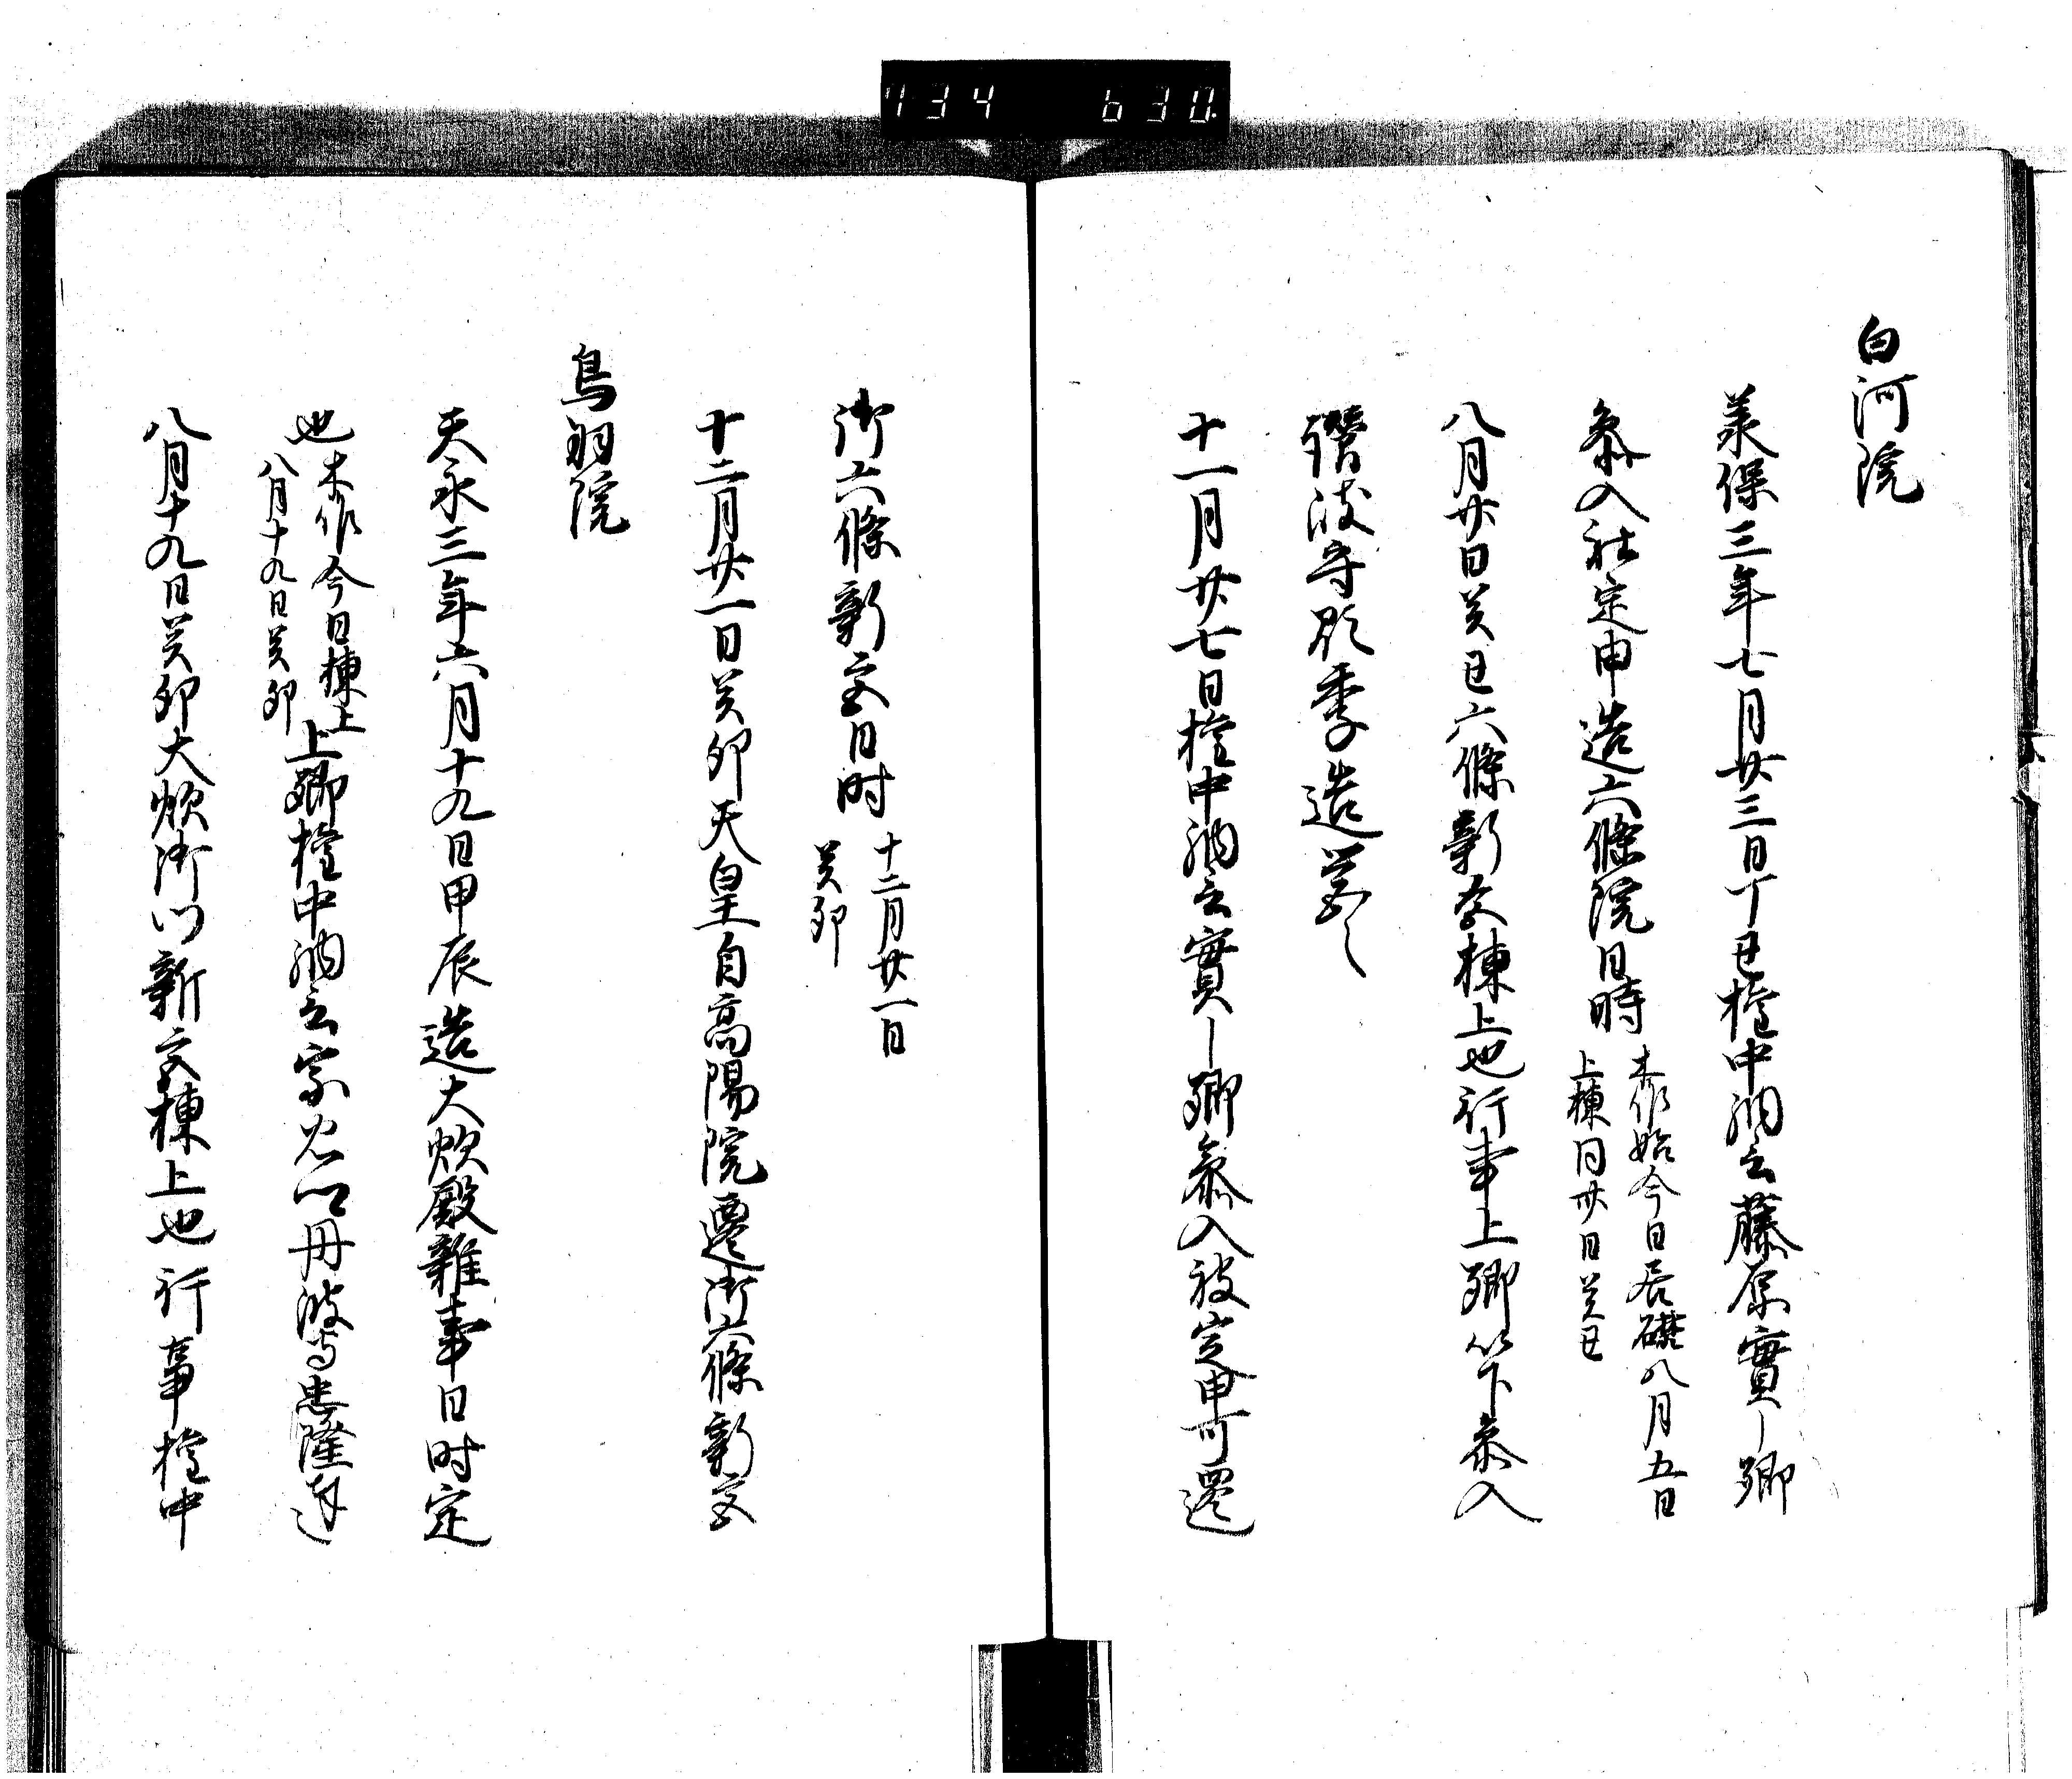 734 630
白河院
美保三年七月廿三日丁丑権中納言藤原實〡卿
参入社定申造六條院日時 木作始今日居礎八月五日
上棟同廿日癸丑
八月廿日癸丑六條新宮棟上也行事上卿以下参入
讃岐守顕季造営之
十一月廿七日権中納言實〡卿参入被定申可遷
御六條新宮日时 十二月廿一日
癸卯
十二月廿一日癸卯天皇自高陽院遷御六條新宮
鳥羽院
天永三年六月十九日甲辰造大炊殿雜事日时定
也 木作今日棟上
八月十九日癸卯 上卿権中納言宗忠以丹波守忠隆造
八月十九日癸卯大炊御门新宮棟上也行事権中